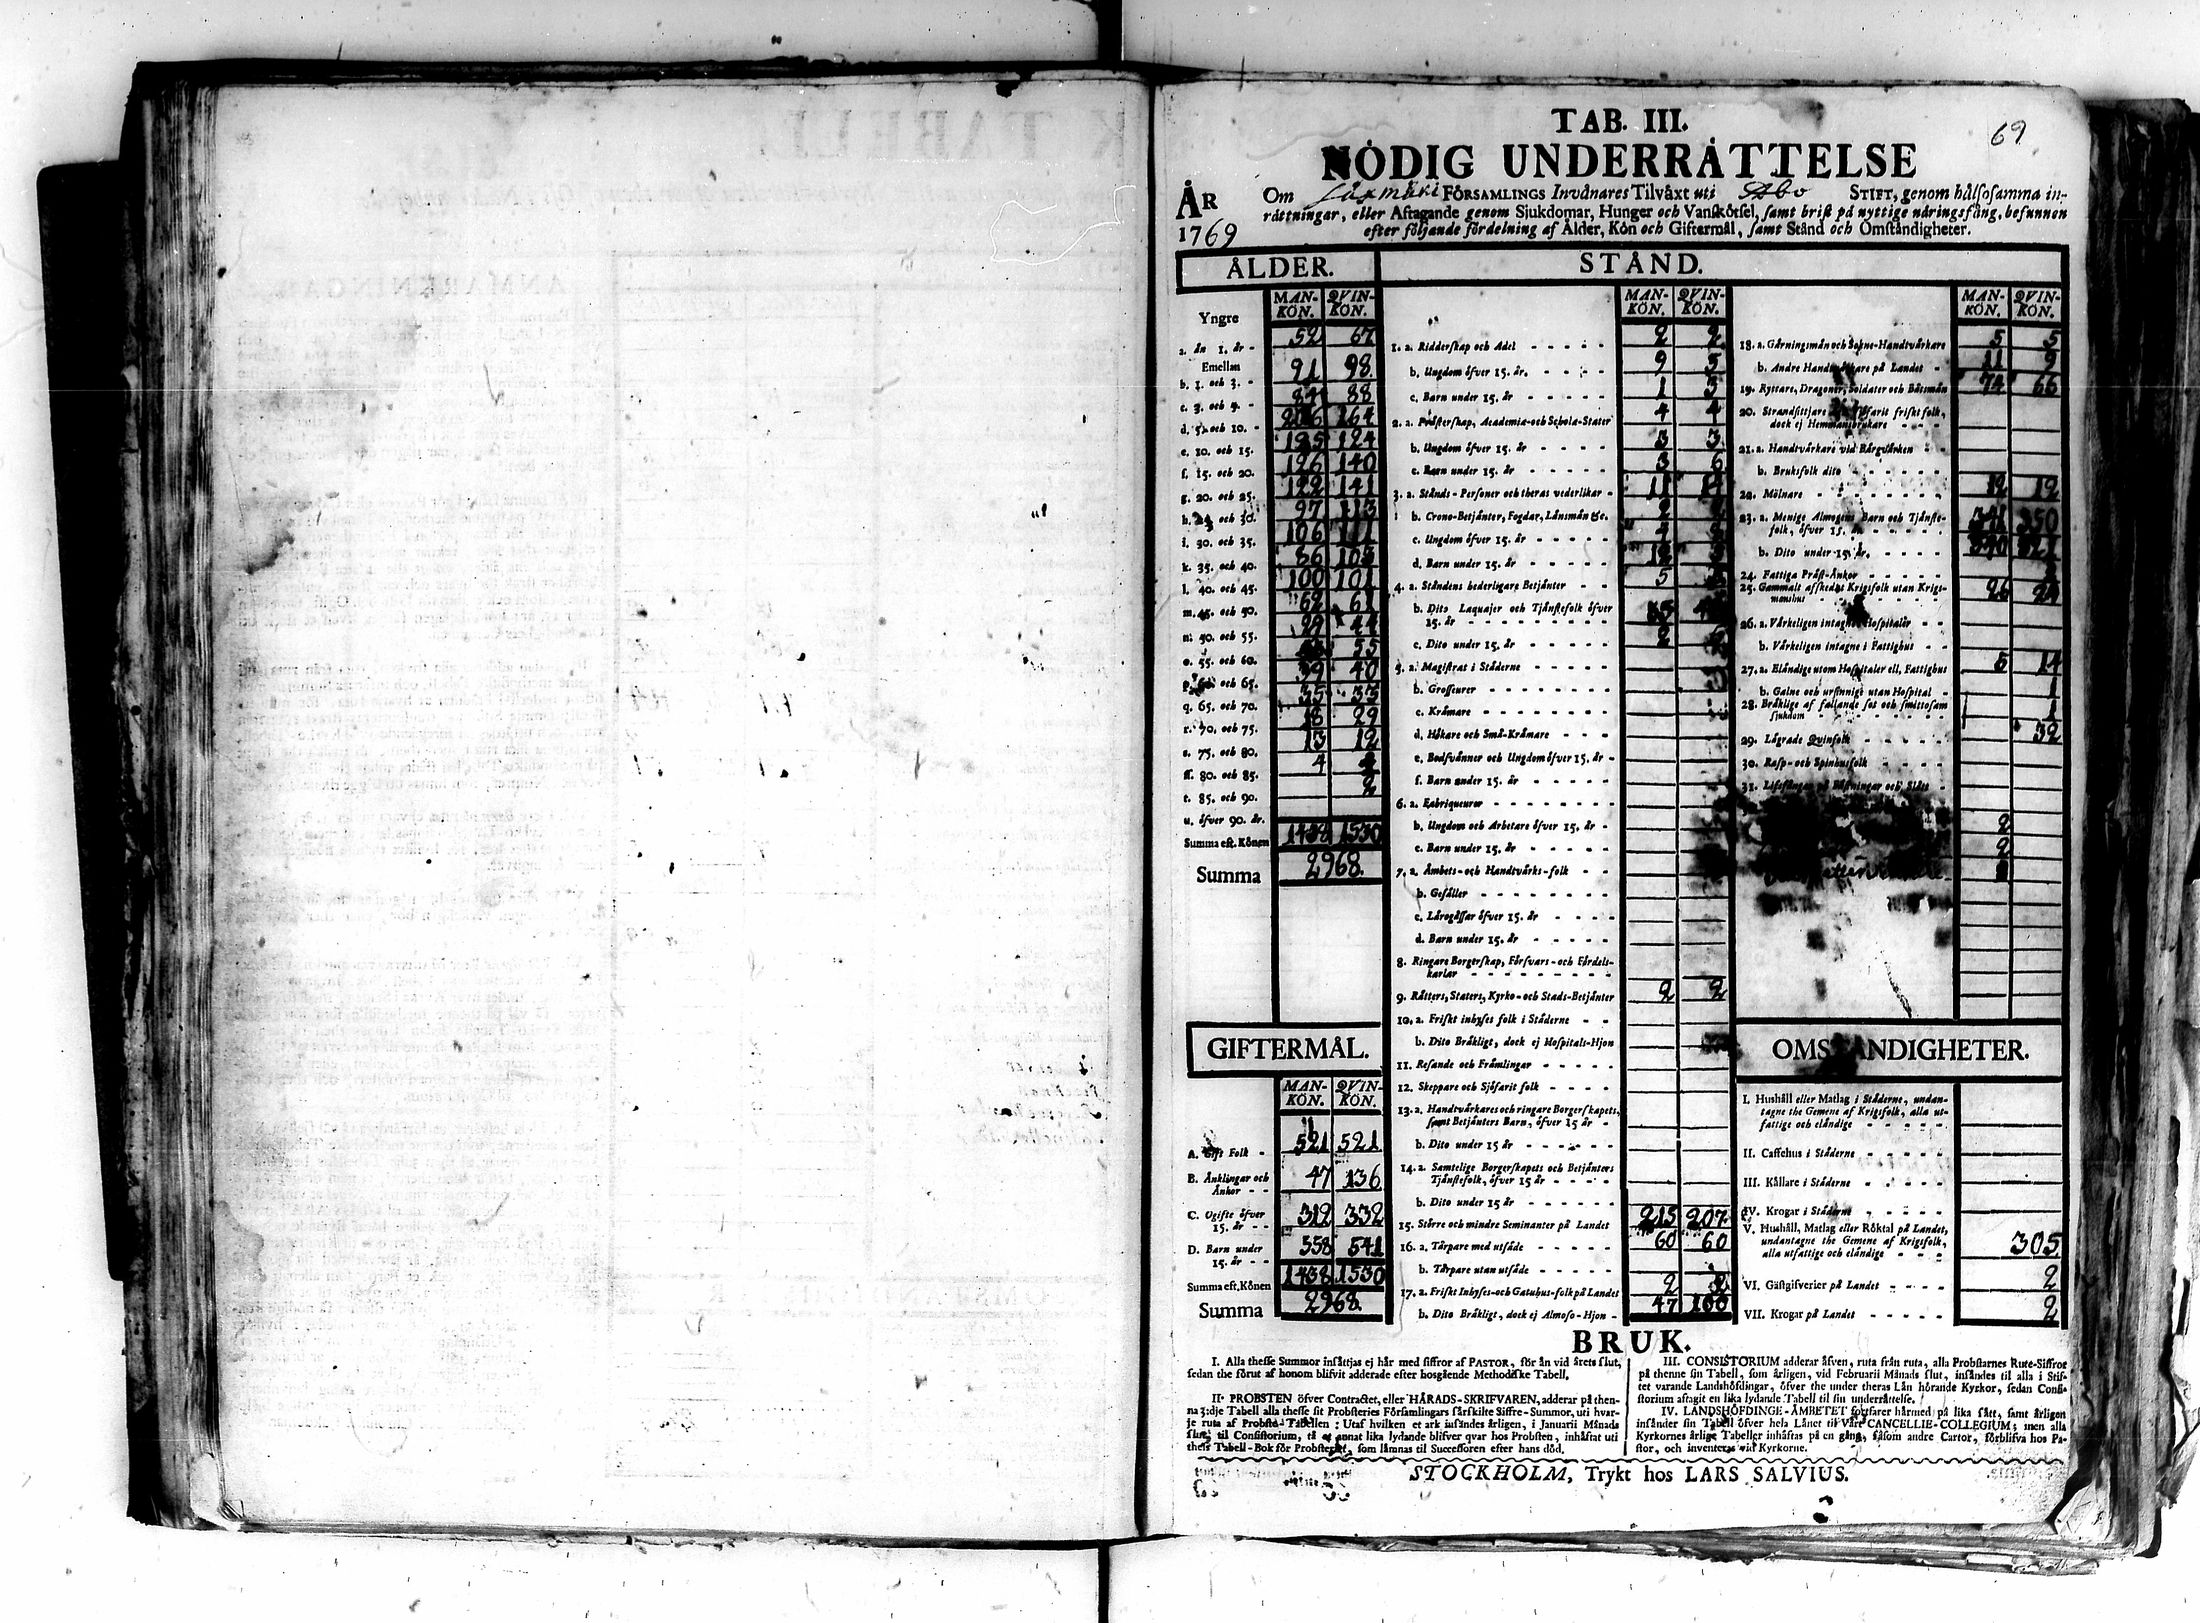 69
TAB. III.
NÖDIG UNDERRÄTTELSE
ÅR 1769
Om FÖRSAMLINGS Invånares Tilväxt uti Åbo STIFT, genom hälsosamma in-
rättningar, eller Aftagande genom Sjukdomar, Hunger och Vanskötsel, samt brist på nyttige näringsfång, befunnen
efter följande fördelning af Ålder, Kön och Giftermål, samt Stånd och Omständigheter.
ÅLDER.
MAN-KÖN. QVIN-KÖN.
Yngre
a. än 1. år - 52 67
Emellan
b. 1. och 3. - 91 98
c. 3. och 5. - 84 88
d. 5. och 10. - 164
e. 10. och 15. 124
f. 15. och 20. 126 140
g. 20. och 25. 122 141
h. och 30. 97 113
i. 30. och 35. 106
k. 35. och 40. 86
l. 40. och 45. 100 101
m. 45. och 50. 62 61
n. 50. och 55. 29 44
o. 55. och 60. 55
p. och 65. 39 40
q. 65. och 70. 35 35
r. 70. och 75. 18 29
s. 75. och 80. 13 12
ſſ. 80. och 85. 4
t. 85. och 90. 2
u. öfver 90. år.
Summa eft. Könen 1438 1530
Summa 2968.
GIFTERMÅL.
MAN-KÖN. QVIN-KÖN.
A. Gift Folk - 521 521
B. Änklingar och Änkor - - 47 136
C. Ogifte öfver 15. år - - 312 332
D. Barn under 15. år - - 558 541
Summa eft. Könen 1438 1530
Summa 2968.
STÅND.
MAN-KÖN. QVIN-KÖN.
1. a. Ridderskap och Adel - - - - - 2 2
b. Ungdom öfver 15. år. - - - - 9 5
c. Barn under 15. år - - - - 1 3
2. a. Prästerskap, Academia- och Schola-Stater 4 4
b. Ungdom öfver 15. år - - - - 3 3
c. Barn under 15. år - - - - 3 6
3. a. Stånds-Personer och theras vederlikar - 11
b. Crono-Betjänter, Fogdar, Länsmän &c. 2
c. Ungdom öfver 15. år - - - -
d. Barn under 15. år - - - - 12
4. a. Ståndens hederligare Betjänter - - 5
b. Dito Laquajer och Tjänstefolk öfver
15. år - - - - - - - - -
c. Dito under 15. år - - - - 2
5. a. Magistrat i Städerne - - - - -
b. Grosseurer - - - - - - - -
c. Krämare - - - - - - - -
d. Hökare och Små-Krämare - - -
e. Bodsvänner och Ungdom öfver 15. år -
f. Barn under 15. år - - - - -
6. a. Fabriqueurer - - - - - - -
b. Ungdom och Arbetare öfver 15. år -
c. Barn under 15. år - - - - -
7. a. Ämbets- och Handtvärks-folk - -
b. Gesäller - - - - - - - -
c. Lärogåssar öfver 15. år - - - -
d. Barn under 15. år - - - - -
8. Ringare Borgerskap, Försvars- och Fördels-
karlar - - - - - - - - -
9. Rätters, Staters, Kyrko- och Stads-Betjänter 2 2
10. a. Friskt inhyses folk i Städerne - -
b. Dito Bräkligt, dock ej Hospitals-Hjon
11. Resande och Främlingar - - - - -
12. Skeppare och Sjöfarit folk - - - -
13. a. Handtvärkares och ringare Borgerskapets,
samt Betjänters Barn, öfver 15 år -
b. Dito under 15 år - - - - -
14. a. Samtelige Borgerskapets och Betjänters
Tjänstefolk, öfver 15 år - - - -
b. Dito under 15 år - - - - -
15. Större och mindre Seminanter på Landet 215 207
16. a. Tårpare med utsäde - - - - - 60 60
b. Tårpare utan utsäde - - - - -
17. a. Friskt Inhyses- och Gatuhus-folk på Landet 2 2
b. Dito Bräkligt, dock ej Almoso-Hjon - 47 100
MAN-KÖN. QVIN-KÖN.
18. a. Gärningsmän och Sokne-Handtvärkare 5 5
b. Andre Handtvärkare på Landet - 11 9
19. Ryttare, Dragoner, Soldater och Båtsmän 74 66
20. Strandsittjare Sjöfarit friskt folk,
dock ej Hemmansbrukare - - - -
21. a. Handtvärkare vid Bärgvärken - -
b. Bruksfolk dito - - - - - -
22. Mölnare - - - - - - - - 12 12
23. a. Menige Almogens Barn och Tjänste-
folk, öfver 15. år - - - - 341 350
b. Dito under 15. år. - - - -
24. Fattiga Präst-Änkor - - - -
25. Gammalt afskedat Krigsfolk utan Krigs-
manshus - - - - - - 26
26. a. Värkeligen intagne i Hospitaler - -
b. Värkeligen intagne i Fattighus - -
27. a. Eländige utom Hospitaler ell. Fattighus 14
b. Galne och ursinnige utan Hospital - 1
28. Bräklige af fallande sot och smittosam
sjukdom - - - - - - - 1
29. Lägrade Qvinfolk - - - - - 32
30. Rasp- och Spinhusfolk - - - -
31. Lifsfångar på Fästningar och Slått -
2
2
OMSTÄNDIGHETER.
I. Hushåll eller Matlag i Städerne, undan-
tagne the Gemene af Krigsfolk, alla ut-
fattige och eländige - - - - -
II. Caffehus i Städerne - - - - -
III. Källare i Städerne - - - - -
IV. Krogar i Städerne - - - - -
V. Hushåll, Matlag eller Röktal på Landet,
undantagne the Gemene af Krigsfolk,
alla utfattige och eländige - - - 305
VI. Gästgifverier på Landet - - - 2
VII. Krogar på Landet - - - - - 2
BRUK.
I. Alla thesse Summor insättjas ej här med siffror af PASTOR, för än vid årets slut,
sedan the förut af honom blifvit adderade efter hosgående Methodiske Tabell.
II. PROBSTEN öfver Contractet, eller HÄRADS-SKRIFVAREN, adderar på then-
na 3:dje Tabell alla thesse sit Probsteries Församlingars särskilte Siffre-Summor, uti hvar-
je ruta af Probste-Tabellen; Utaf hvilken et ark insändes årligen, i Januarii Månads
slut, til Consistorium, tå et annat lika lydande blifver qvar hos Probsten, inhäftat uti
thess Tabell-Bok för Probsteriet, som lämnas til Successoren efter hans död.
III. CONSISTORIUM adderar äfven, ruta från ruta, alla Probstarnes Rute-Siffror
på thenne sin Tabell, som årligen, vid Februarii Månads slut, insändes til alla i Stif-
tet varande Landshöfdingar, öfver the under theras Län hörande Kyrkor, sedan Consi-
storium aftagit en lika lydande Tabell til sin underrättelse.
IV. LANDSHÖFDINGE-ÄMBETET fortfarer härmed på lika sätt, samt årligen
insänder sin Tabell öfver hela Länet til Vårt CANCELLIE-COLLEGIUM; men alla
Kyrkornes årlige Tabeller inhäftas på en gång, såsom andre Cartor, förblifva hos Pa-
stor, och inventeras vid Kyrkorne.
STOCKHOLM, Trykt hos LARS SALVIUS.